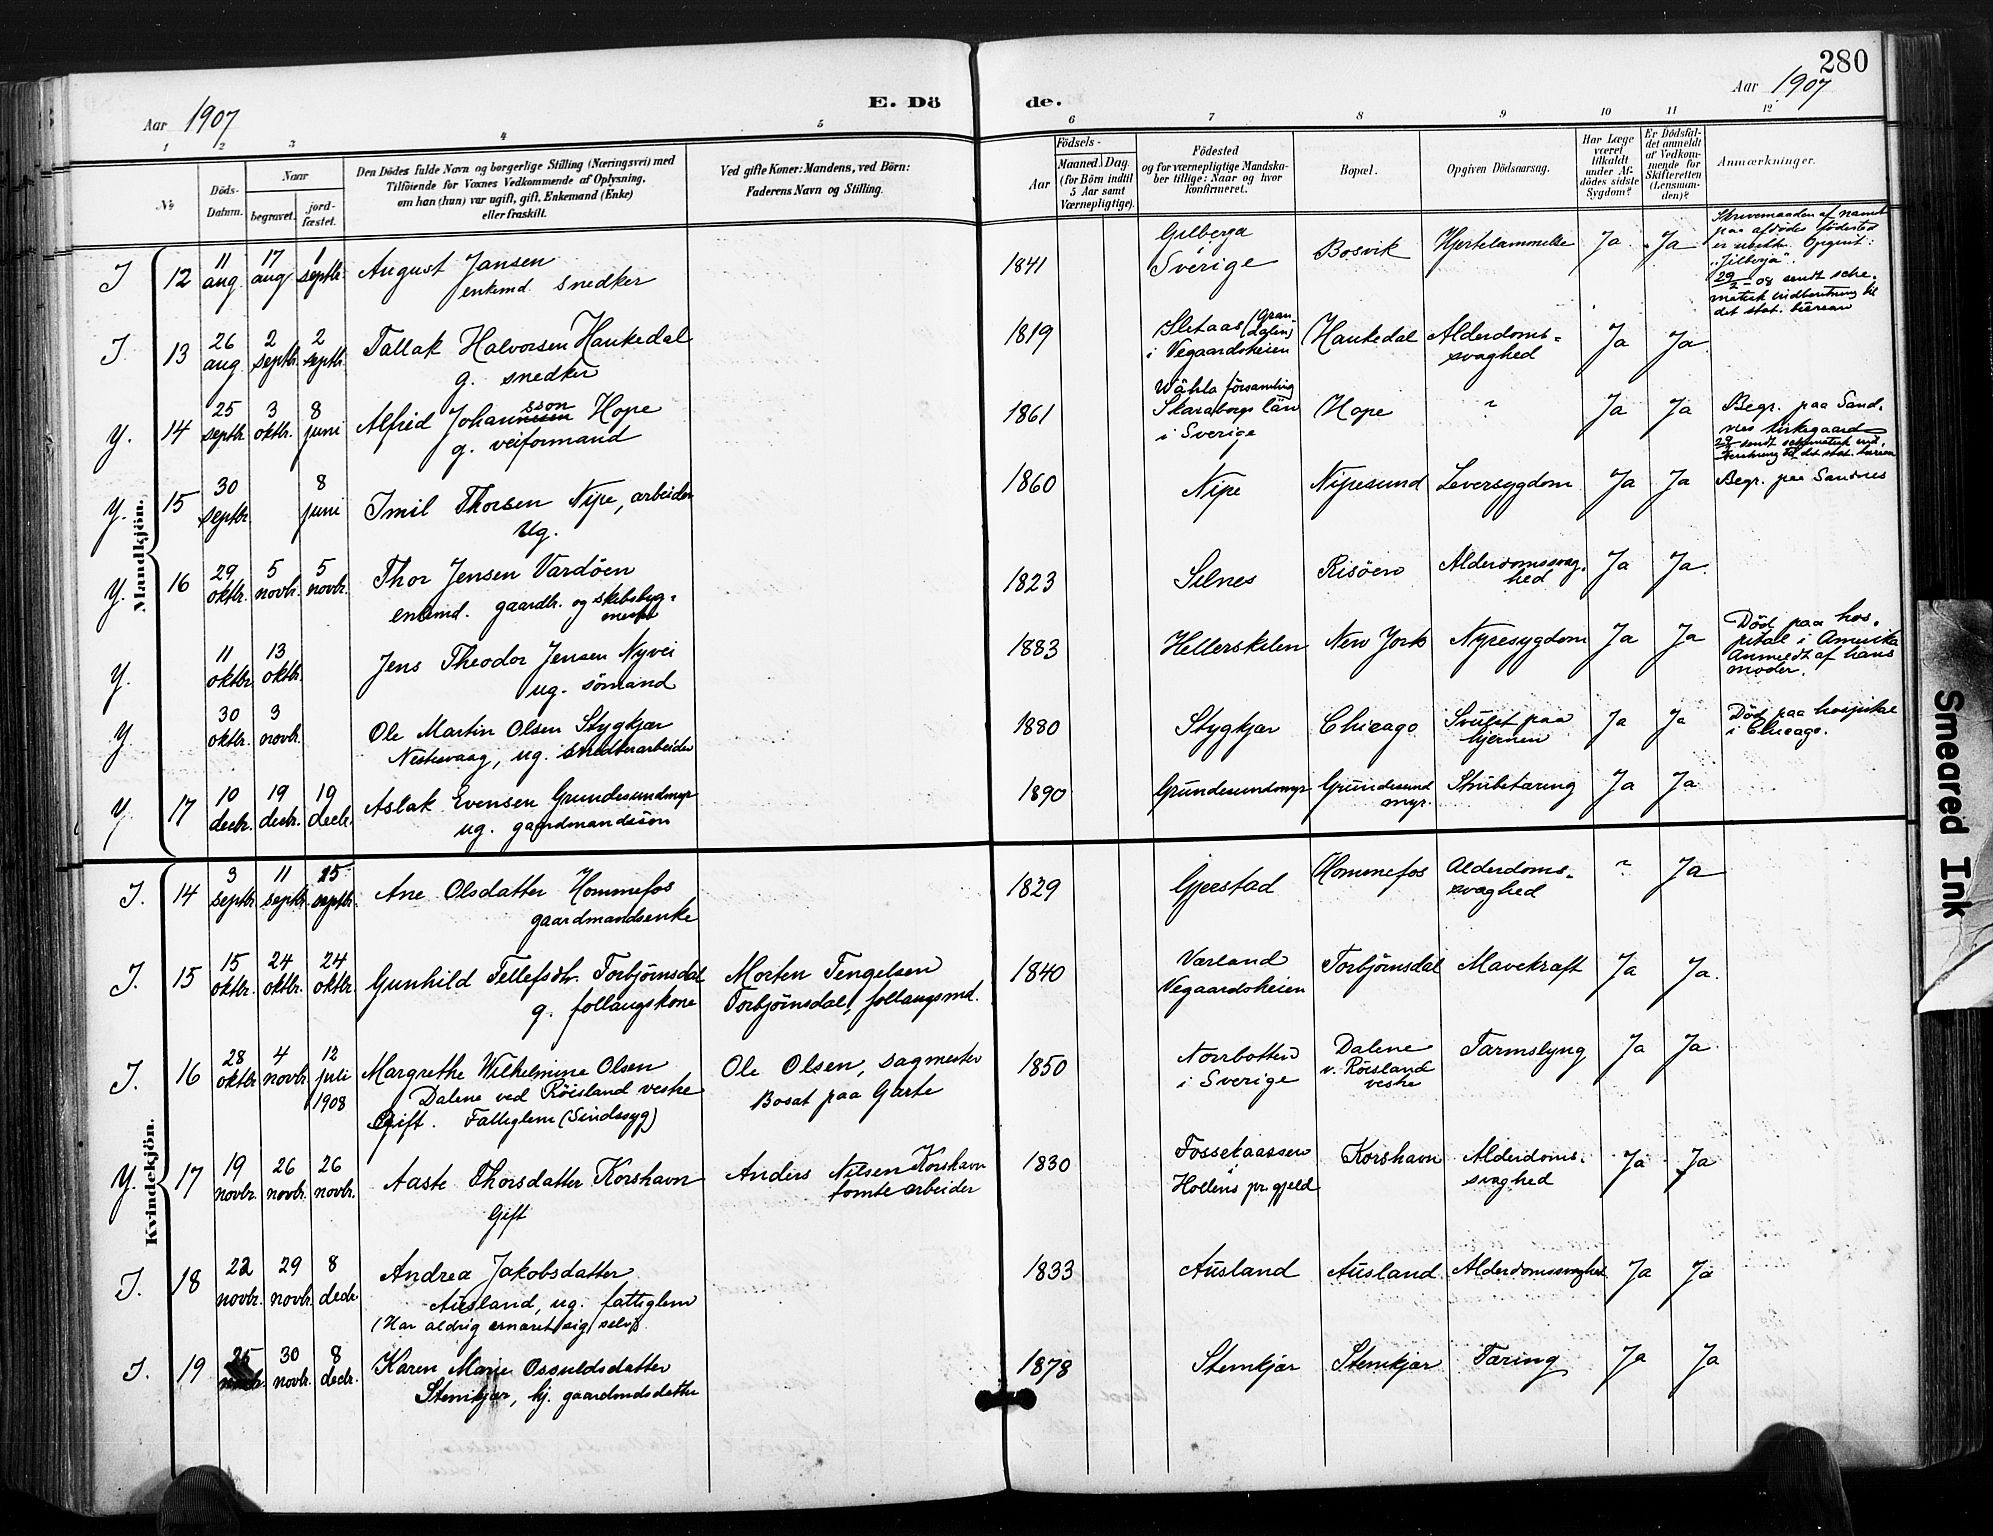 280
Aar 1907
E. Döde.
Aar 1907
1 2 3 4 5 6 7 8 9 10 11 12
No
Döds-Datum.
Naar
begravet.
jord-fæstet.
Den Dödes fulde Navn og borgerlige Stilling (Næringsvei) med
Tilföiende for Voxnes Vedkommende af Oplysning,
om han (hun) var ugift, gift, Enkemand (Enke)
eller fraskilt.
Ved gifte Koner: Mandens, ved Börn:
Faderens Navn og Stilling.
Födsels-
Aar
Maaned Dag
(for Börn indtil
5 Aar samt
Værnepligtige).
Födested
og for værnepligtige Mandska-
ber tillige: Naar og hvor
konfirmeret.
Bopæl.
Opgiven Dödsaarsag.
Har Læge
været
tilkaldt
under Af-
dödes sidste
Sygdom?
Er Dödsfal-
det anmeldt
af Vedkom-
mende for
Skifteretten
(Lensman-
den)?
Anmærkninger.
Mandkjön.
I 12 11 aug. 17 aug. 1 septbr. August Jansen
enkemd. snedker
1841 Gilberga
Sverige Bosvik Hjertelammelse Ja Ja
Skrivemaaden af navnet
paa afdødes fødested
er ubekk. Opgivit:
"Jilberja".
29/2-08 sendt sche-
matisk indberetning til
det stat. bureau
I 13 26 aug 2 septbr. 2 septbr. Tallak Halvorsen Haukedal
g. snedker
1819 Sletaas (Gran-
dalen)
i Vegaardsheien Haukedal Alderdoms-
svaghed Ja Ja
Y. 14 25 septbr. 3 oktbr. 8 juni Alfred Johannsson Hope
g. veiformand
1861 Wåhla församling
Skaraborgs län
i Sverige Hope " Ja Ja
Begr. paa Sand-
nes kirkegaard
sendt schematisk ind-
beretning til det stat. bureau
Y. 15 30 septbr. 8 juni Imil Thorsen Nipe, arbeider
Ug.
1860 Nipe Nipesund Leversygdom Ja Ja Begr. paa Sandnes
Y. 16 29 oktbr. 5 novbr. 5 novbr. Thor Jensen Vardöen
enkemd. gaardbr. og skibsbyg-
mester
1823 Selnes Risöen Alderdomssvag-
hed Ja Ja.
Y. 11 oktbr. 13 oktbr. Jens Theodor Jensen Nyvei
ug. sömand
1883 Hellerskilen New York Nyresygdom Ja Ja
Död paa hos-
pital i Amerika
Anmeldt af hans
moder.
Y 30 oktbr. 3 novbr. Ole Martin Olsen Stygkjær
Neskevaag, ug. smeltearbeider
1880 Stygkjær Chicago Svulst paa
hjernen Ja Ja
Död paa hospital
i Chicago.
Y 17 10 decbr. 19 decbr. 19 decbr. Aslak Evensen Grundesundmyr
ug. gaardmandssön
1890 Grundesundmyr Grundesund
myr. Strubetæring Ja Ja
Kvindekjön.
I. 14 3 septbr. 11 septbr. 15 septbr. Ane Olsdatter Hommefos
gaardmandsenke
1829 Gjerstad Hommefos Alderdoms-
svaghed " Ja
I. 15 15 oktbr. 24 oktbr. 24 oktbr Gunhild Tellefsdtr. Torbjørnsdal
g. follaugskone
Morten Tengelsen
Torbjørnsdal, follaugsmd.
1840 Værland
Vegaardsheien Torbjørnsdal Mavekræft Ja Ja.
I. 16 28 oktbr 4 novbr. 12 juli 1908 Margrethe Wilhelmine Olsen
Dalene ved Röisland vestre
Gift. Fattiglem (Sindssyg)
Ole Olsen, sagmester
Bosat paa Garte
1850 Norrbotten
i Sverige Dalene
v. Röisland
vestre Tarmslyng Ja Ja.
Y. 17 19 novbr. 26 novbr. 26 novbr. Aaste Thorsdatter Korshavn
Gift
Anders Nilsen Korshavn
tomtearbeider
1830 Fossekaassen
Hollens pr.gjeld Korshavn Alderdoms-
svaghed Ja Ja
I. 18 22 novbr. 29 novbr. 8 decbr. Andrea Jakobsdatter
Ausland, ug. fattiglem
(Har aldrig ernæret sig selv)
1833 Ausland Ausland Alderdomssvaghed Ja Ja
I. 19 25 30 novbr. 8 decbr. Karen Marie Osvuldsdatter
Stemkjær, hj. gaardmdsdatter
1878 Stemkjær Stemkjær Tæring Ja Ja
Smeared Ink